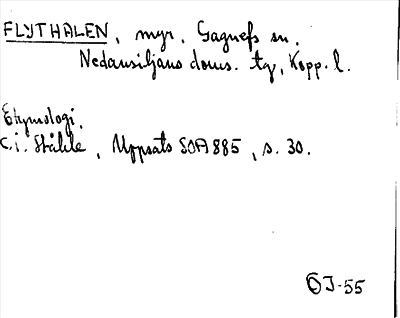 FLYTHALEN, myr, Gagnefs sn.
Nedansiljans doms. tg, Kopp. l.
Etymologi.
C.i. Ståhle, Uppsats SOA 885, s. 30.
ÖJ-55